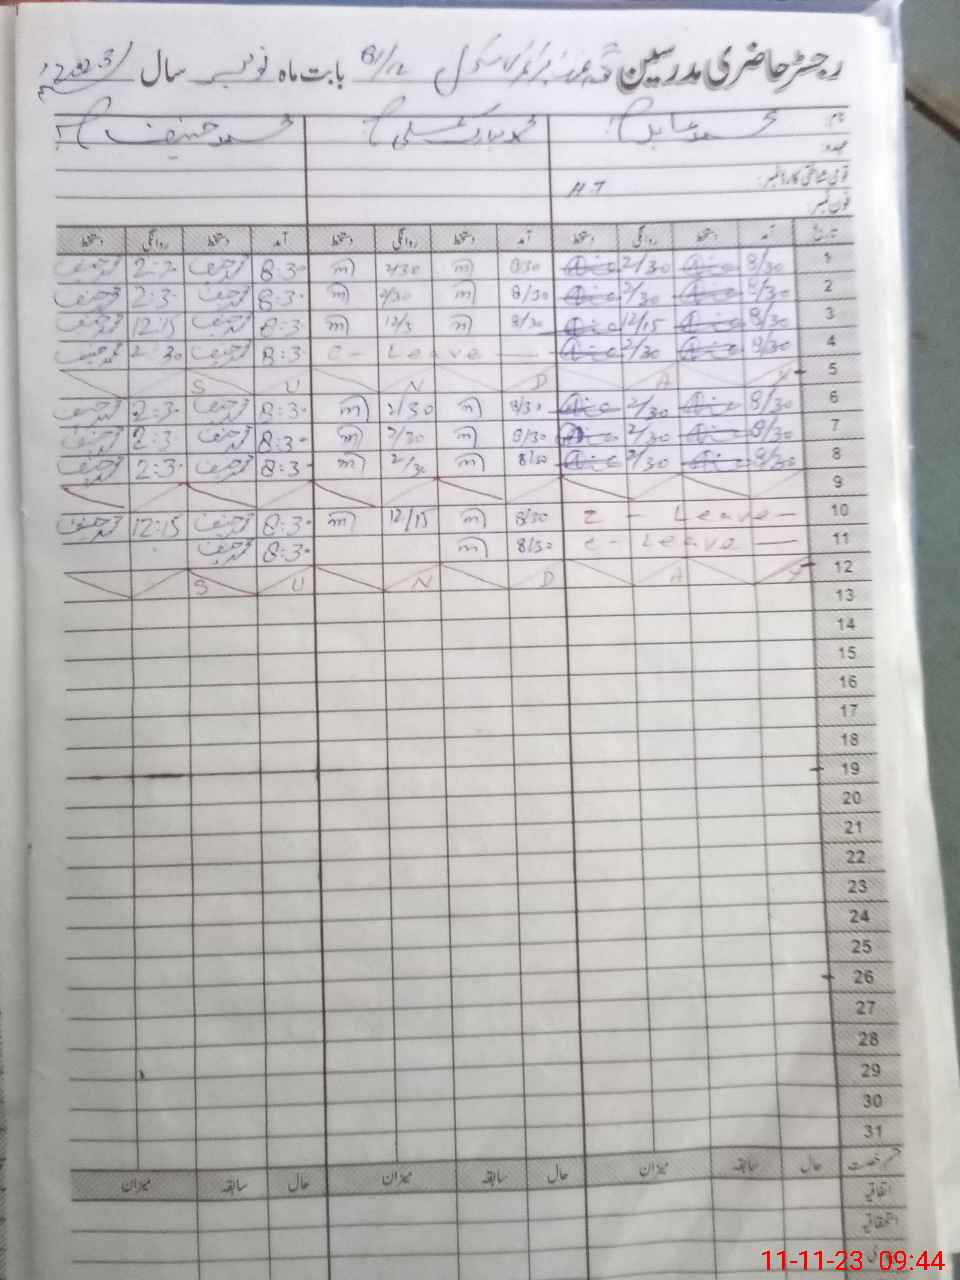 رجسٹر حاضری مدرسین گورنمنٹ پرائمری سکول بابت ماہ نومبر سال 2023ء
نام: محمد عابد محمد مبارک علی محمد حنیف
عہدہ:
قومی شناختی کارڈ نمبر: H.T
فون نمبر:
تاریخ آمد دستخط روانگی دستخط آمد دستخط روانگی دستخط آمد دستخط روانگی دستخط
1 8/30 2/30 8/30 m 2/30 m 8:30 محمد حنیف 2:30 محمد حنیف
2 8/30 2/30 8/30 m 2/30 m 8:30 محمد حنیف 2:30 محمد حنیف
3 8/30 12/15 8/30 m 12/15 m 8:30 محمد حنیف 12:15 محمد حنیف
4 8/30 2/30 C - Leave — 8:30 محمد حنیف 2:30 محمد حنیف
5 S U N D A Y
6 8/30 2/30 8/30 m 2/30 m 8:30 محمد حنیف 2:30 محمد حنیف
7 8/30 2/30 8/30 m 2/30 m 8:30 محمد حنیف 2:30 محمد حنیف
8 8/30 2/30 8/30 m 2/30 m 8:30 محمد حنیف 2:30 محمد حنیف
9
10 C - Leave — 8/30 m 12/15 m 8:30 محمد حنیف 12:15 محمد حنیف
11 C - Leave — 8/30 m 8:30 محمد حنیف
12 S U N D A Y
13
14
15
16
17
18
19
20
21
22
23
24
25
26
27
28
29
30
31
قسم رخصت حال سابقہ میزان حال سابقہ میزان حال سابقہ میزان
اتفاقیہ
استحقاقیہ
11-11-23 09:44